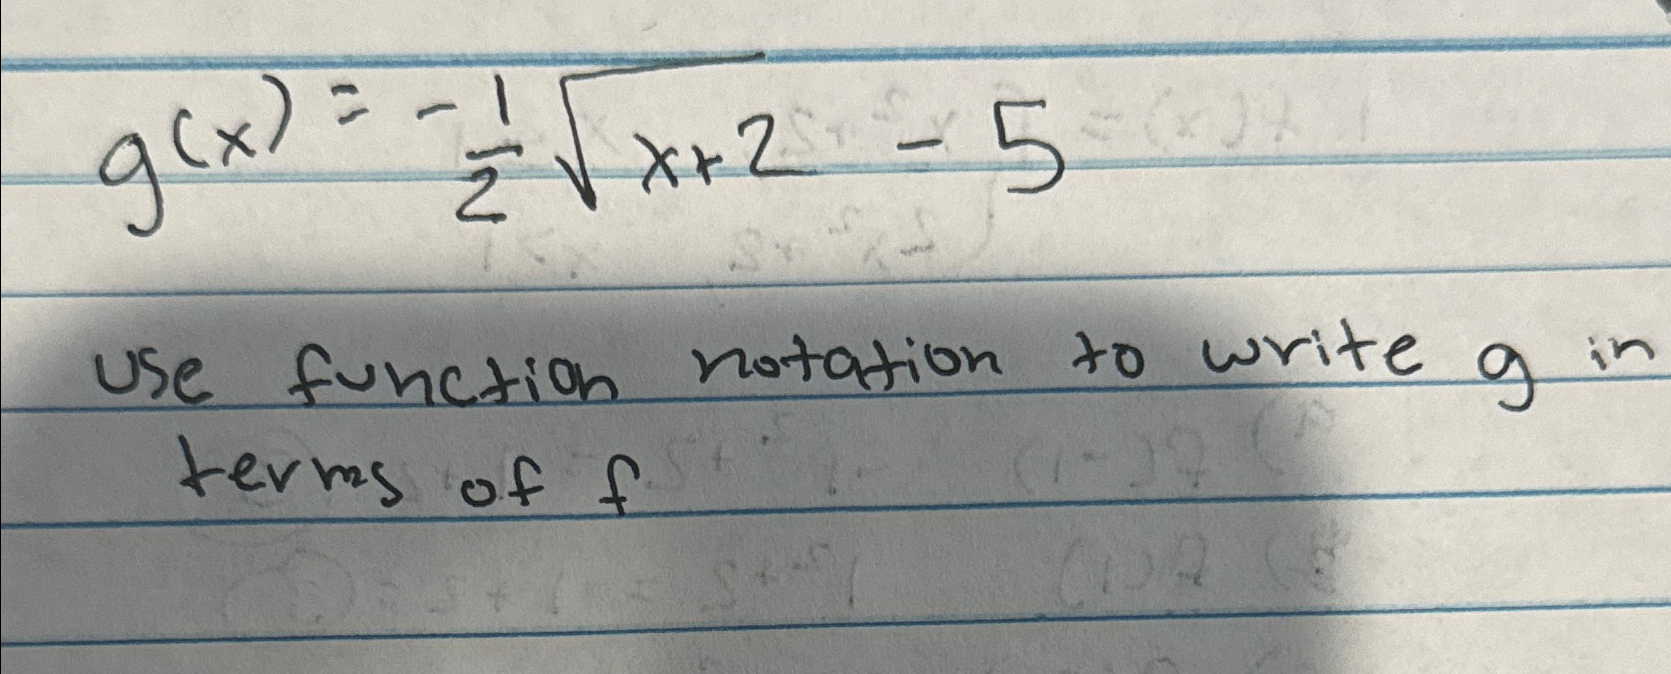 g(x) = -1/2 √x+2 - 5
use function notation to write g in
terms of f